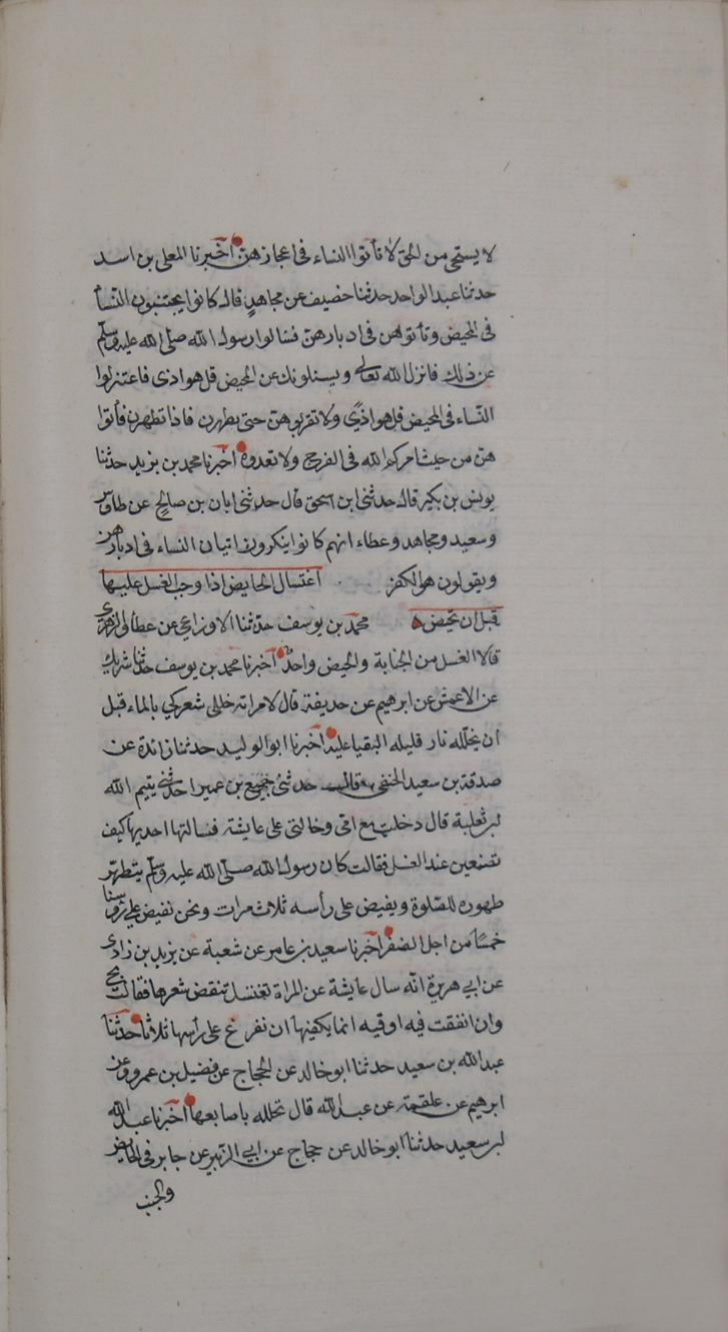 لا يستحى من الحق لا تأتوا النساء فى اعجازهن اخبرنا المعلى بن اسد
حدثنا عبد الواحد حدثنا خصيف عن مجاهد قال كانوا يجتنبون النسأ
فى المحيض وتأتوهن فى ادبارهن فسالوا رسول الله صلى الله عليه وسلم
عن ذلك فانزل الله تعالى ويسئلونك عن المحيض قل هو اذى فاعتزلوا
النساء فى المحيض قل هو اذى ولا تقربوهن حتى يطهرن فاذا تطهرن فأتوا
هن من حيث امركم الله فى الفرج ولا تعدوه اخبرنا محمد بن يزيد حدثنا
يونس بن بكير قال حدثنى ابن اسحق قال حدثنى ابان بن صالح عن طاوس
وسعيد ومجاهد وعطاء انهم كانوا ينكرون اتيان النساء فى ادبارهن
ويقولون هو الكفر اغتسال الحايض اذا وجب الغسل عليها
قبل ان تحيض محمد بن يوسف حدثنا الاوزاعي عن عطا والزهرى
قالا الغسل من الجنابة والحيض واحد اخبرنا محمد بن يوسف حدثنا شريك
عن الاعمش عن ابرهيم عن حذيفة قال لامراته خللى شعركي بالماء قبل
ان تخلله نار قليله البقيا عليه اخبرنا ابو الوليد حدثنا زائدة عن
صدقة بن سعيد الحنفى قالت حدثنى جميع بن عمير احدثنى يتيم الله
بن ثعلبة قال دخلت مع امى وخالتى على عايشة فسالتها احديها كيف
تصنعين عند الغسل فقالت كان رسول الله صلى الله عليه وسلم يتطهر
طهوره للصلوة ويفيض على رأسه ثلاث مرات ونحن نفيض على رؤسنا
خمسًا من اجل الضفر اخبرنا سعيد بن عامر عن شعبة عن يزيد بن زادى
عن ابي هريرة انه سال عايشة عن المراة تغتسل تنقض شعرها فقالت بخ
وان انفقت فيه اوقيه انما يكفيها ان تفرغ على رأسها ثلاثا حدثنا
عبد الله بن سعيد حدثنا ابو خالد عن الحجاج عن فضيل بن عمرو وعن
ابرهيم عن علقمة عن عبد الله قال تخلله باصابعها اخبرنا عبد الله
بن سعيد حدثنا ابو خالد عن حجاج عن ابي الزبير عن جابر فى الحايض
والجنب